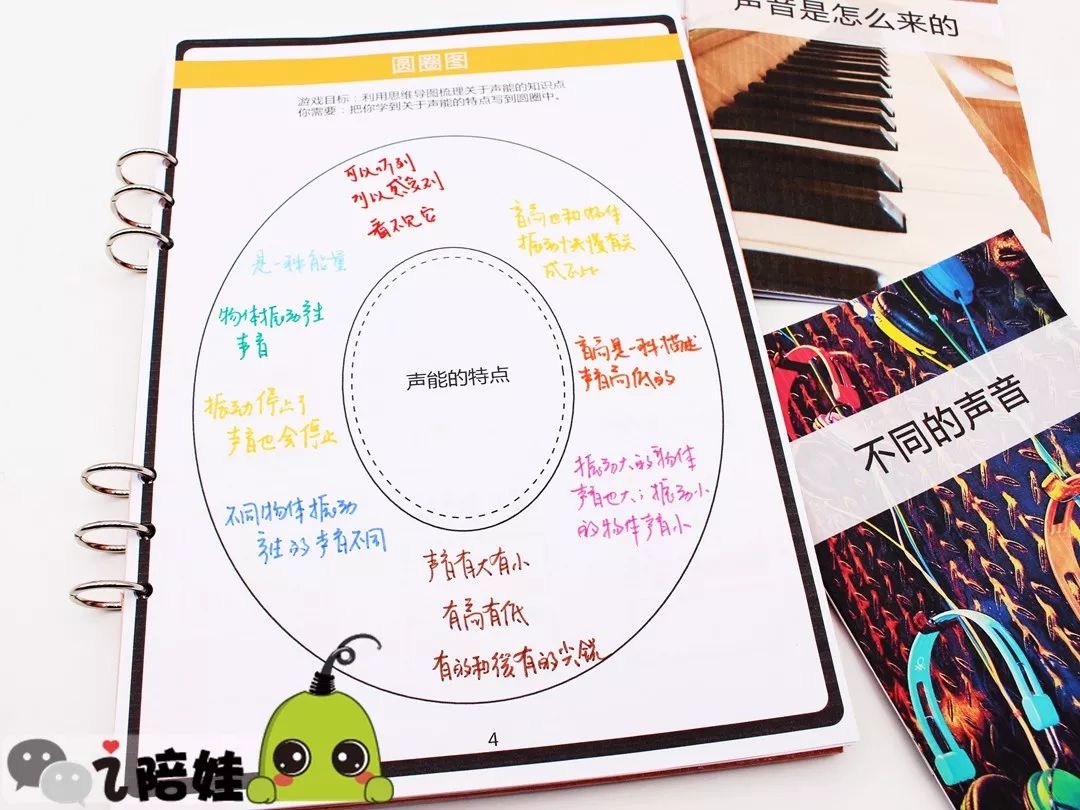 圆圈图
游戏目标：利用思维导图梳理关于声能的知识点
你需要：把你学到关于声能的特点写到圆圈中。
可以听到
可以感受到
看不见它
音高也和物体
振动快慢有关
成正比
是一种能量
物体振动产生
声音
音高是一种描述
声音高低的
声能的特点
振动停止了
声音也会停止
振动大的物体
声音也大；振动小
的物体声音小
不同物体振动
产生的声音不同
声音有大有小
有高有低
有的和缓有的尖锐
4
声音是怎么来的
不同的声音
i陪娃